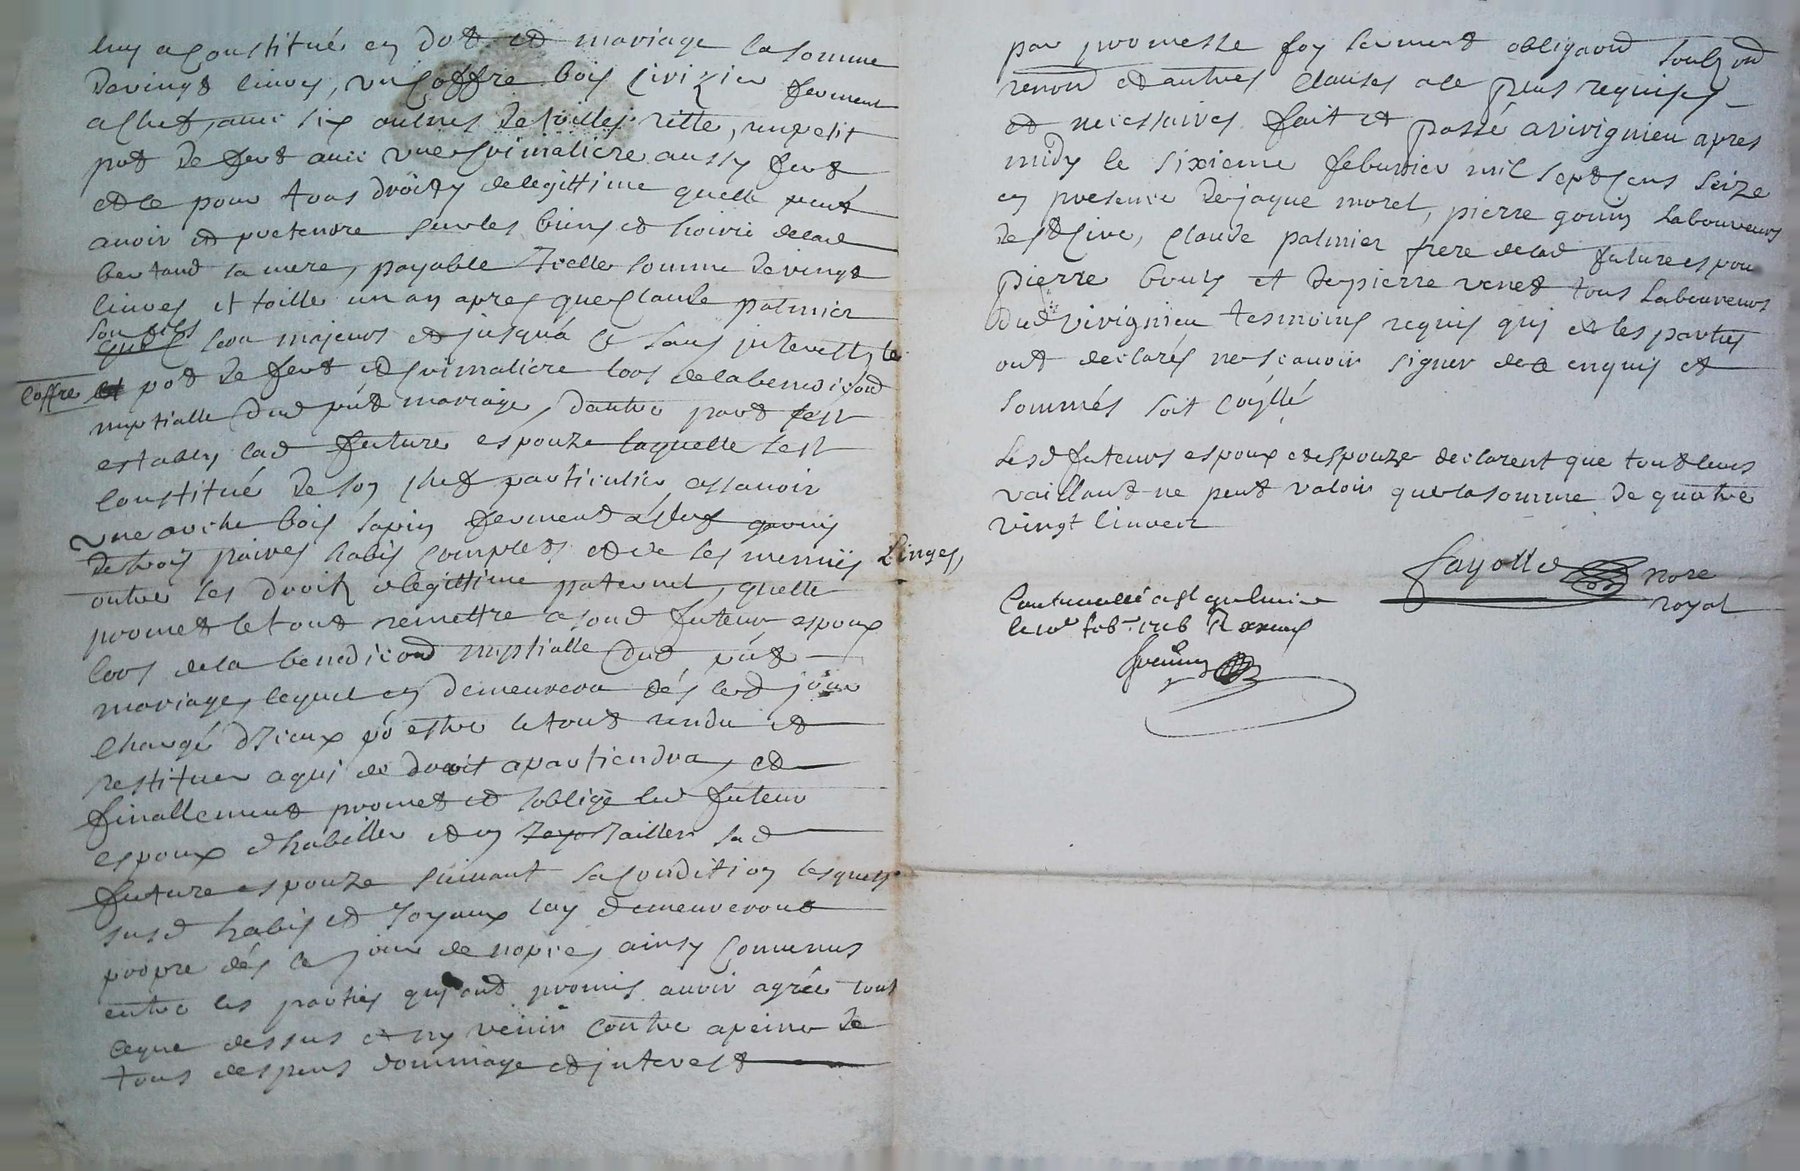 luy a Constitué en dot et mariage la somme
de vingt livres, un Coffre bois Cirizier fermant
a Clef, avec six aulnes de toilles ritte, un petit
pot de fert avec une Crimaliere aussy fert
et ce pour tous droits de legittime quelle peut
avoir et pretendre sur les biens et hoirie de lad
bertaud sa mere, payable Icelle somme de vingt
livres et toille un an apres que Claude palmier
son fils
sera majeurs et jusqu'a ce sans interestz, le
Coffre pot de fert et Crimaliere lors de la benediction
nuptialle dud pnt mariage, dautre part sest
establys lad future espouze laquelle sest
Constitué de son chef particulier assavoir
une arche bois sapin fermant a clef garnis
de trois paires habis complets et de ses menues Linges,
outre ses droits et legittime paternel, quelle
promet le tout remettre a sond futeur espoux
lors de la benediction nuptialle dud pnt
mariage, lequel en demeurera dés led jour
Chargé d'Iceux pr estre le tout rendu et
restituer a qui de droit apartiendra, et
finallement promet et soblige led futeur
espoux d'habiller et en Joyailler sad
future espouze suivant sa Condition lesquels
susd habis et Joyaux luy demeureront
propre dés le jour de nopces, ainsy Convenus
entre les parties qui ont promis avoir agrée tout
ceque dessus et ny venir contre a peine de
tous despens dommage et interest
par promesse foy serment obligaond soubzond
renond et autres Clauses a ce plus requises
et necessaires fait et passé a virignieu apres
midy le sixieme feburier mil sept Cens seize
en presence de jaque morel, pierre gonin Laboureurs
de st Cire, Claude palmier frere de lad future espou
pierre et de pierre venet tous Laboureurs
dud virignieu tesmoins requis qui et les parties
ont declarés ne scavoir signer de ce enquis et
sommés soit
Lesd futeurs espoux et espouze declarent que tout leurs
vaillant ne peut valoir que la somme de quatre
vingt livres
fayolle nore
royal
Controllé a st galmier
le 10e feb. 1716 R